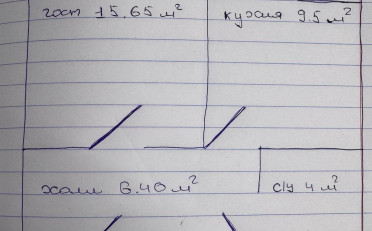 гост 15.65 м²
кухня 9.5 м²
холл 6.40 м²
с/у 4 м²